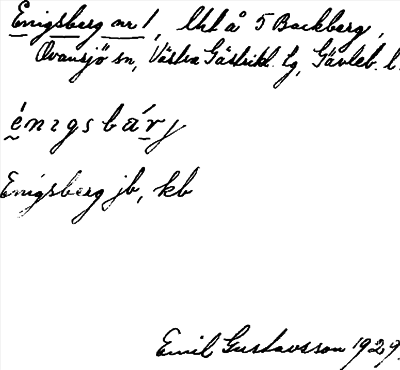 Enigsberg nr 1, lht å 5 Backberg,
Ovansjö sn, Västra Gästrikl. tg, Gävleb. l.
énigsbárj
Enigsberg jb, kb
Emil Gustavsson 1929.